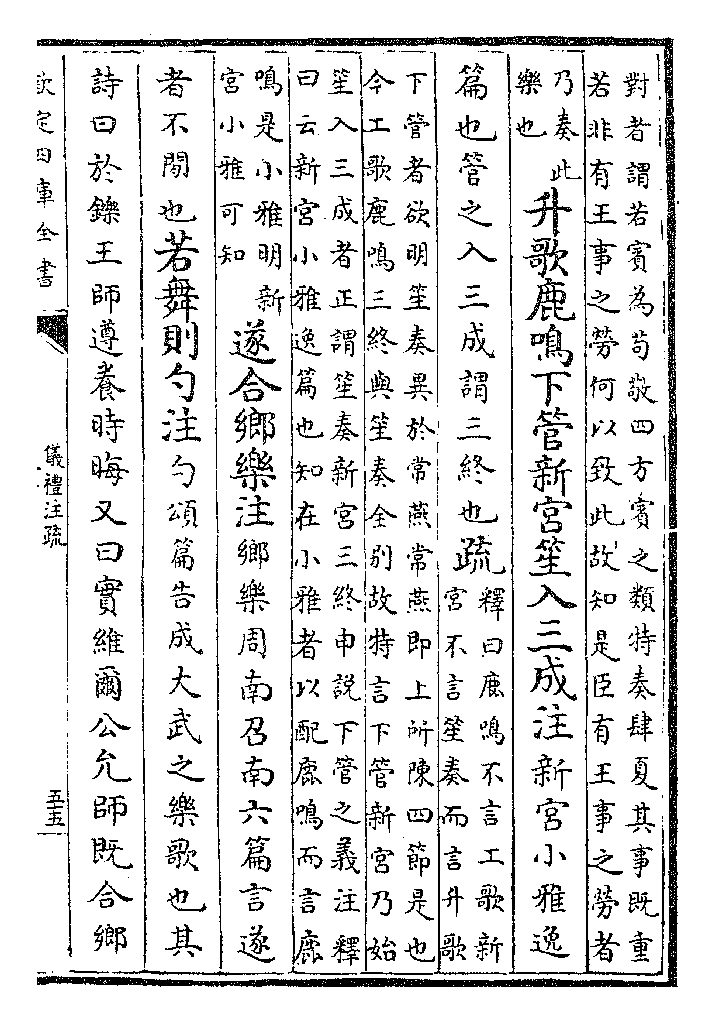 對者謂若賓為苟敬四方賓之類特奏肆夏其事既重
若非有王事之勞何以致此故知是臣有王事之勞者
乃奏此
樂也
升歌鹿鳴下管新宮笙入三成注新宮小雅逸
篇也管之入三成謂三終也疏
釋曰鹿鳴不言工歌新
宮不言笙奏而言升歌
下管者欲明笙奏異於常燕常燕即上所陳四節是也
今工歌鹿鳴三終與笙奏全別故特言下管新宮乃始
笙入三成者正謂笙奏新宮三終申說下管之義注釋
曰云新宮小雅逸篇也知在小雅者以配鹿鳴而言鹿
鳴是小雅明新
宮小雅可知
遂合鄉樂注鄉樂周南召南六篇言遂
者不間也若舞則勺注勺頌篇告成大武之樂歌也其
詩曰於鑠王師遵養時晦又曰實維爾公允師既合鄉
欽定四庫全書
儀禮注疏
五五